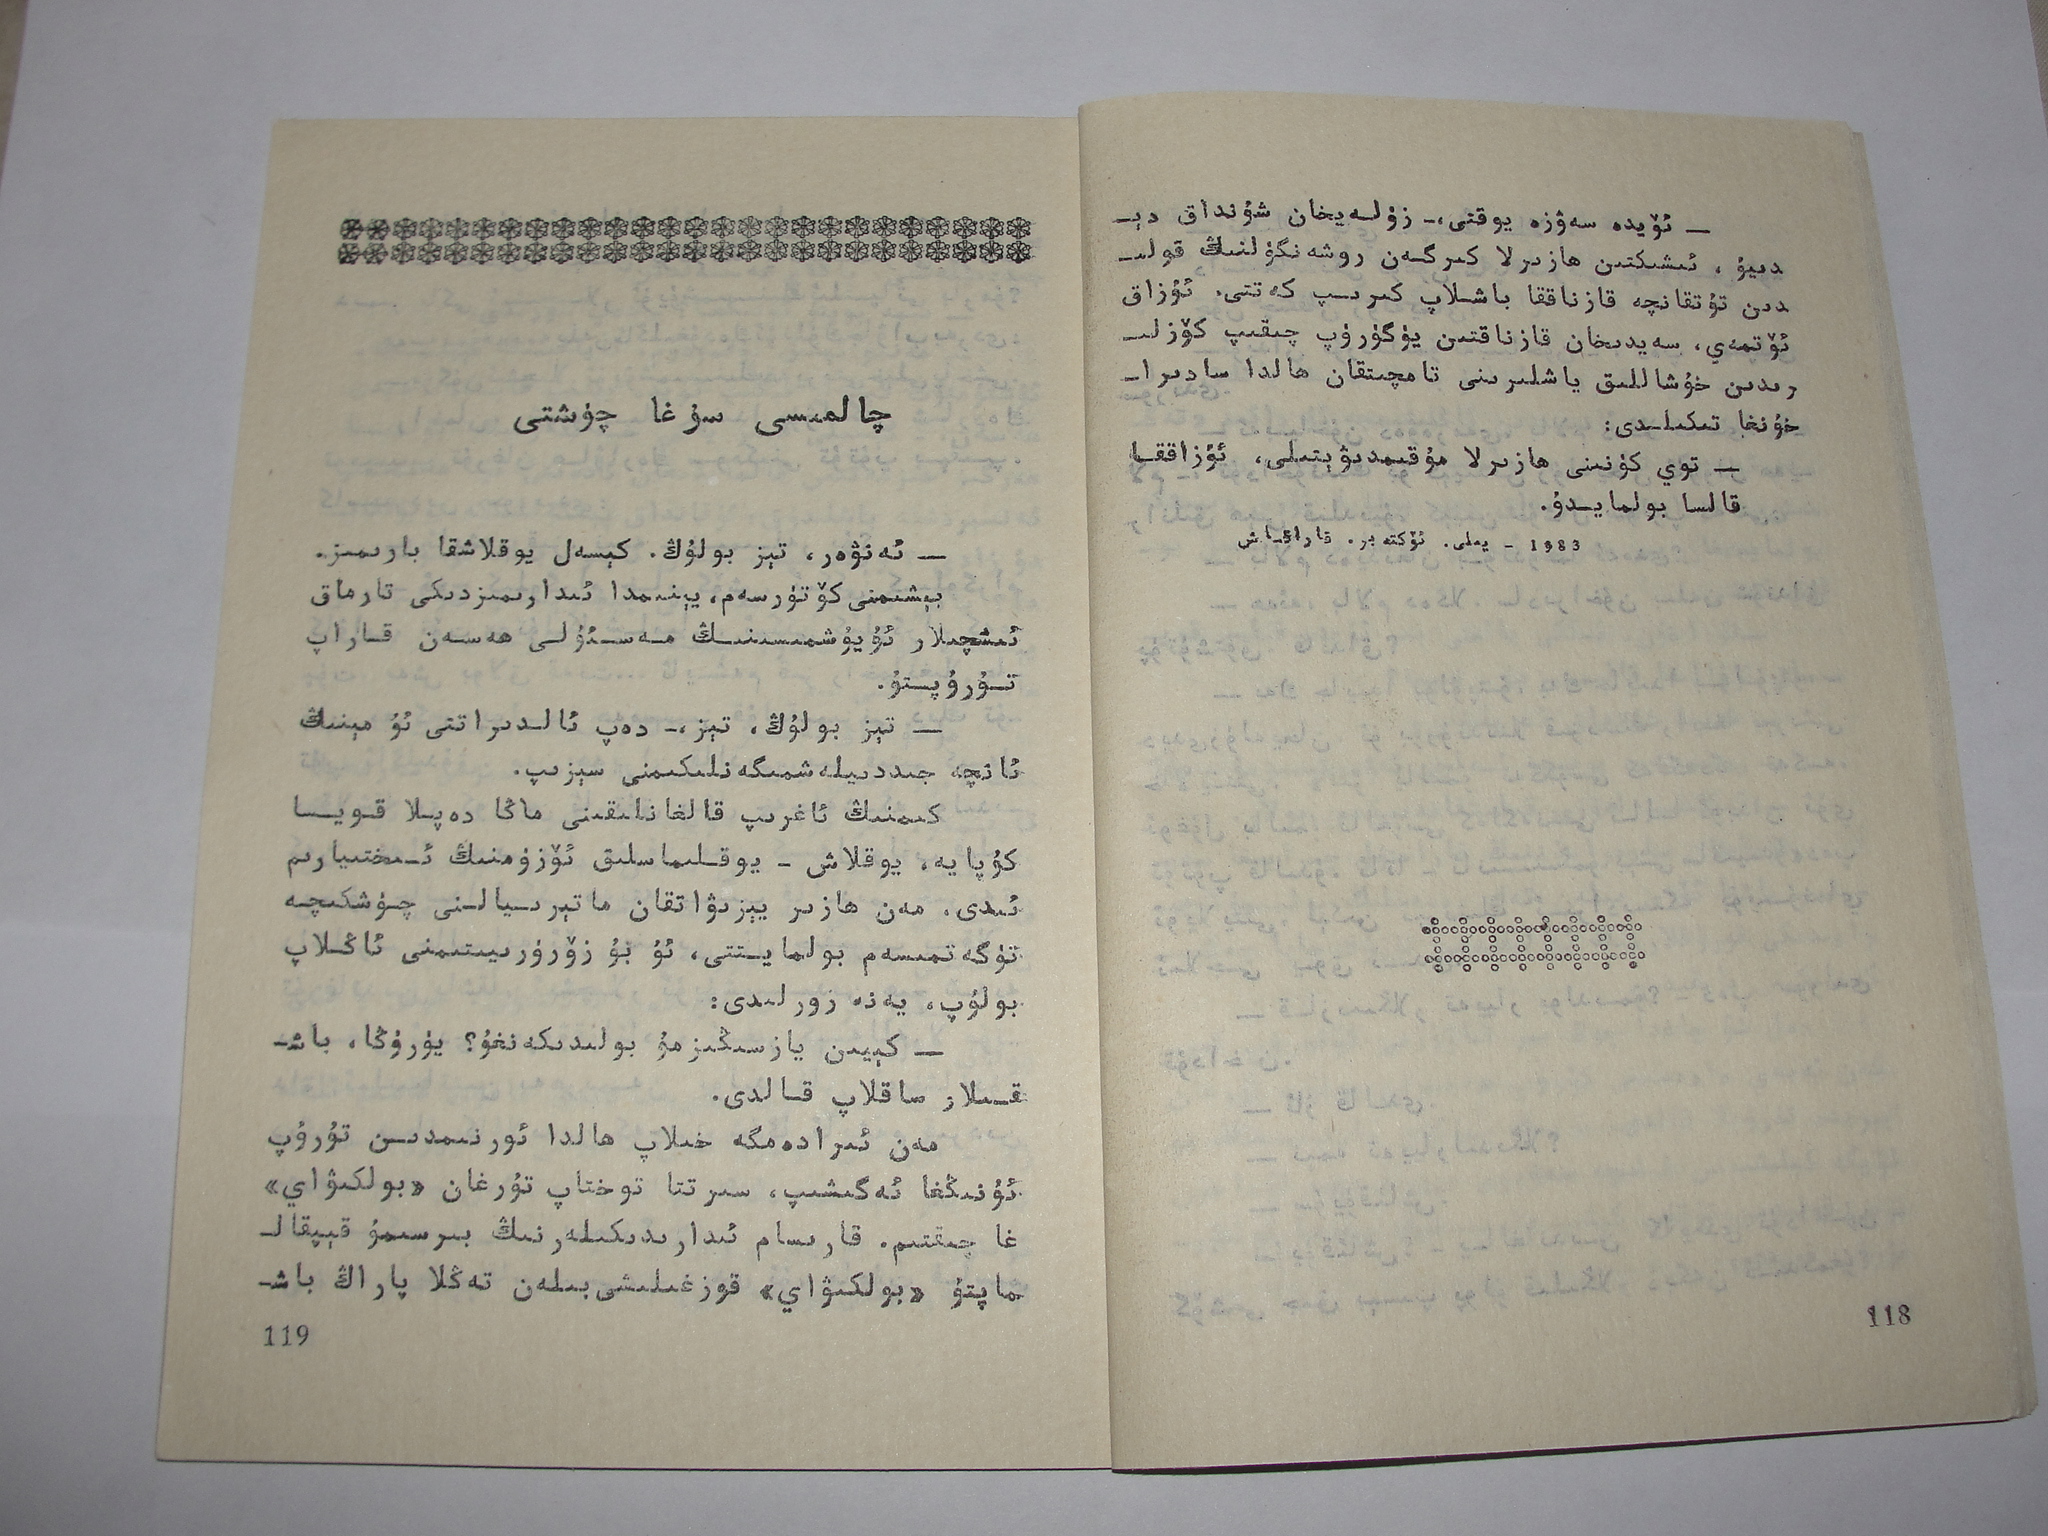 — ئۆيدە سەۋزە يوقتى،- زۇلەيخان شۇنداق دې-
دىيۇ ، ئىشىكتىن ھازىرلا كىرگەن روشەنگۈلنىڭ قولى-
دىن تۇتقانچە قازناققا باشلاپ كىرىپ كەتتى. ئۇزاق
ئۆتمەي، سەيدىخان قازناقتىن يۈگۈرۈپ چىقىپ كۆزلى-
رىدىن خۇشاللىق ياشلىرىنى تامچىتقان ھالدا سادىرا-
خۇنغا تىكىلدى:
— توي كۈنىنى ھازىرلا مۇقىمدىۋېتىلى، ئۇزاققا
قالسا بولمايدۇ.
1983 - يىلى. ئۆكتەبىر. قاراقاش
118
چالمىسى سۇغا چۈشتى
— ئەنۋەر، تېز بولۇڭ. كېسەل يوقلاشقا بارىمىز.
بېشىمنى كۆتۈرسەم، يېنىمدا ئىدارىمىزدىكى تارماق
ئىشچىلار ئۇيۇشمىسىنىڭ مەسئۇلى ھەسەن قاراپ
تۇرۇپتۇ.
— تېز بولۇڭ، تېز،- دەپ ئالدىراتتى ئۇ مېنىڭ
ئانچە جىددىيلەشمىگەنلىكىمنى سېزىپ.
كىمنىڭ ئاغرىپ قالغانلىقىنى ماڭا دەپلا قويسا
كۇپايە، يوقلاش - يوقلىماسلىق ئۆزۈمنىڭ ئىختىيارىم
ئىدى. مەن ھازىر يېزىۋاتقان ماتېرىيالنى چۈشكىچە
تۈگەتمىسەم بولمايتتى، ئۇ بۇ زۆرۈرىيىتىمنى ئاڭلاپ
بولۇپ، يەنە زورلىدى:
— كېيىن يازسىڭىزمۇ بولىدىكەنغۇ؟ يۈرۈڭا، باش-
قىلار ساقلاپ قالدى.
مەن ئىرادەمگە خىلاپ ھالدا ئورنىمدىن تۇرۇپ
ئۇنىڭغا ئەگىشىپ، سىرتتا توختاپ تۇرغان «بولكىۋاي»
غا چىقتىم. قارىسام ئىدارىدىكىلەرنىڭ بىرسىمۇ قېپقال-
ماپتۇ «بولكىۋاي» قوزغىلىشى بىلەن تەڭلا پاراڭ باش-
119